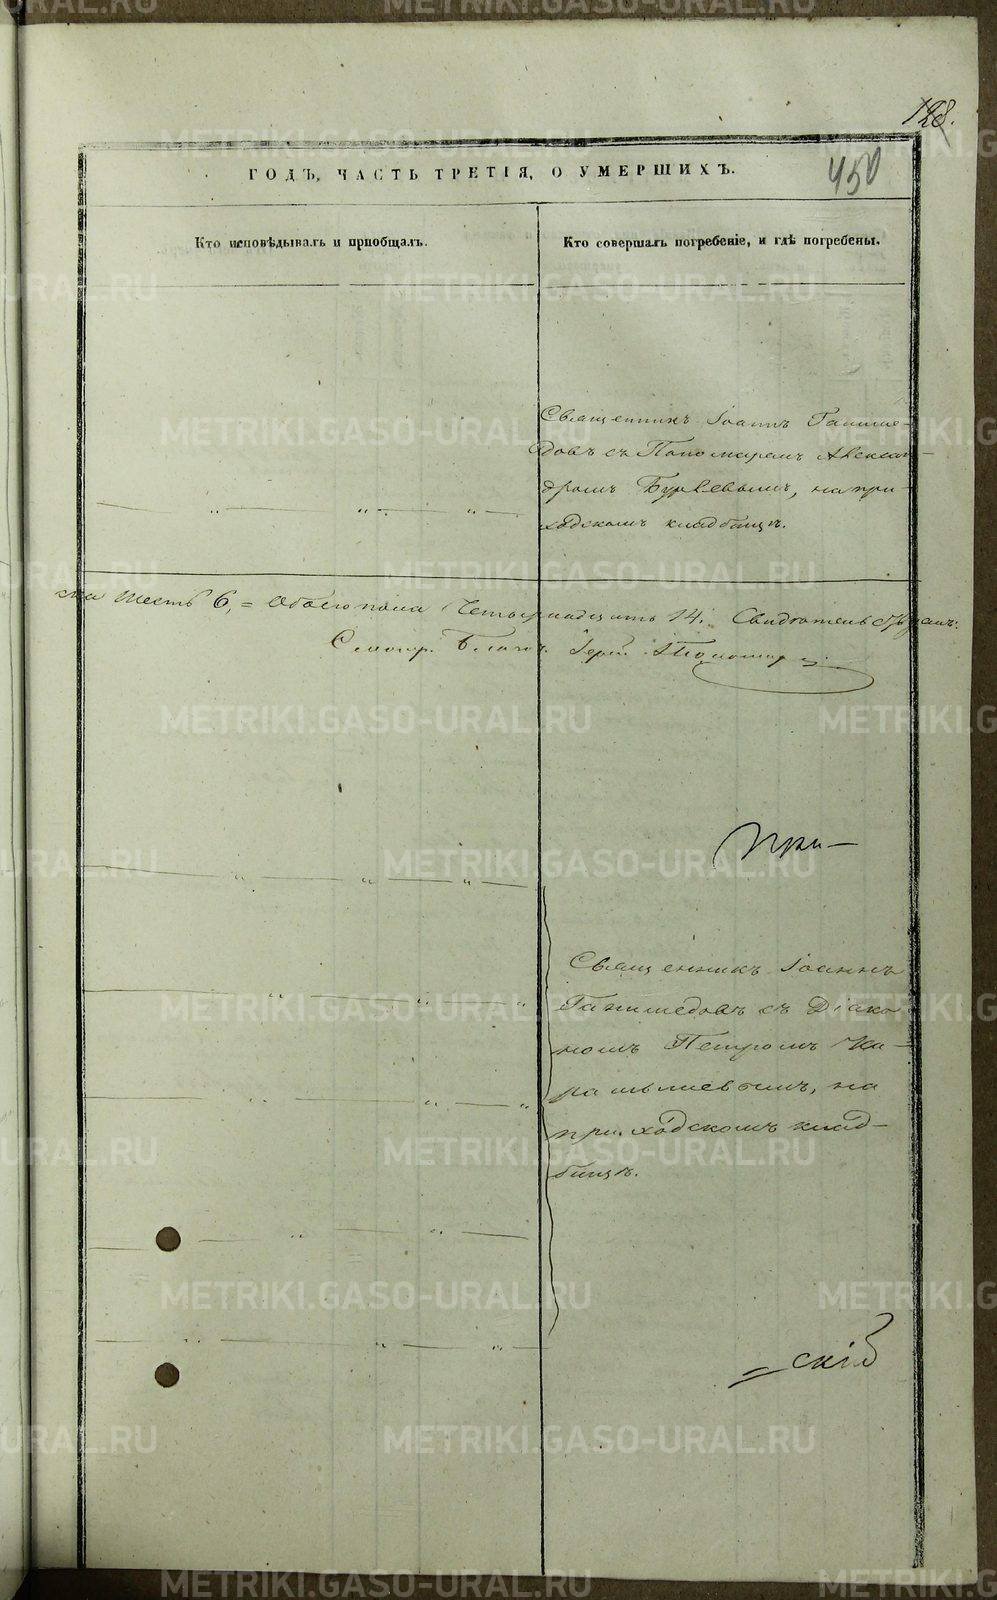 128.
450
ГОДЪ, ЧАСТЬ ТРЕТІЯ, О УМЕРШИХЪ.
Кто исповѣдывалъ и пріобщалъ.
Кто совершалъ погребеніе, и гдѣ погребены.
Священникъ Іоаннъ Ганиме-
довъ съ Пономаремъ Алексан-
дромъ Бурлевымъ, на при-
ходскомъ кладбищѣ.
на шесть 6, = Обоего пола Четырнадцать 14.
Іерей
При-
Священникъ Іоаннъ
Ганимедовъ съ Діако-
номъ Петромъ Ка-
рамылевымъ, на
приходскомъ клад-
бищѣ.
= скій
METRIKI.GASO-URAL.RU